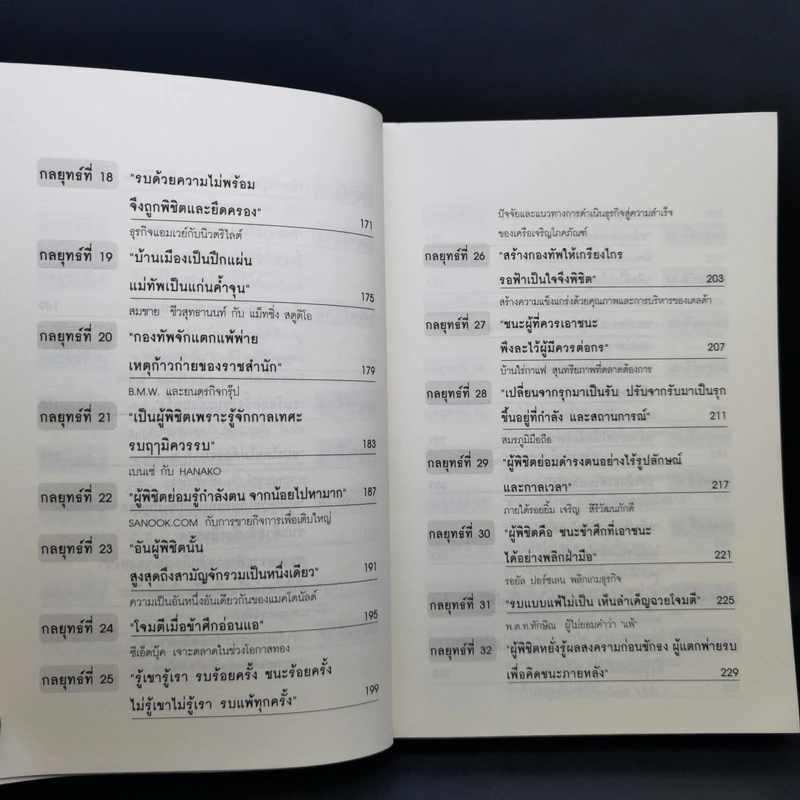 กลยุทธ์ที่ 18 "รบด้วยความไม่พร้อม
จึงถูกพิชิตและยึดครอง" 171
ธุรกิจแอมเวย์กับนิวตริไลต์
กลยุทธ์ที่ 19 "บ้านเมืองเป็นปึกแผ่น
แม่ทัพเป็นแก่นค้ำจุน" 175
สมชาย ชีวสุทธานนท์ กับ แม็ทชิ่ง สตูดิโอ
กลยุทธ์ที่ 20 "กองทัพจักแตกแพ้พ่าย
เหตุก้าวก่ายของราชสำนัก" 179
B.M.W. และยนตรกิจกรุ๊ป
กลยุทธ์ที่ 21 "เป็นผู้พิชิตเพราะรู้จักกาลเทศะ
รบฤๅมิควรรบ" 183
เบนเซ่ กับ HANAKO
กลยุทธ์ที่ 22 "ผู้พิชิตย่อมรู้กำลังตน จากน้อยไปหามาก" 187
SANOOK.COM กับการขายกิจการเพื่อเติบใหญ่
กลยุทธ์ที่ 23 "อันผู้พิชิตนั้น
สูงสุดถึงสามัญจักรวมเป็นหนึ่งเดียว" 191
ความเป็นอันหนึ่งอันเดียวกันของแมคโดนัลด์
กลยุทธ์ที่ 24 "โจมตีเมื่อข้าศึกอ่อนแอ" 195
ซีเอ็ดบุ๊ค เจาะตลาดในช่วงโอกาสทอง
กลยุทธ์ที่ 25 "รู้เขารู้เรา รบร้อยครั้ง ชนะร้อยครั้ง
ไม่รู้เขาไม่รู้เรา รบแพ้ทุกครั้ง" 199
ปัจจัยและแนวทางการดำเนินธุรกิจสู่ความสำเร็จ
ของเครือเจริญโภคภัณฑ์
กลยุทธ์ที่ 26 "สร้างกองทัพให้เกรียงไกร
รอฟ้าเป็นใจจึงพิชิต" 203
สร้างความแข็งแกร่งด้วยคุณภาพและการบริหารของเดลต้า
กลยุทธ์ที่ 27 "ชนะผู้ที่ควรเอาชนะ
พึงละไว้ผู้มีควรต่อกร" 207
บ้านไร่กาแฟ สุนทรียภาพที่ตลาดต้องการ
กลยุทธ์ที่ 28 "เปลี่ยนจากรุกมาเป็นรับ ปรับจากรับมาเป็นรุก
ขึ้นอยู่ที่กำลัง และสถานการณ์" 211
สมรภูมิมือถือ
กลยุทธ์ที่ 29 "ผู้พิชิตย่อมดำรงตนอย่างไร้รูปลักษณ์
และกาลเวลา" 217
ภายใต้รอยยิ้ม เจริญ สิริวัฒนภักดี
กลยุทธ์ที่ 30 "ผู้พิชิตคือ ชนะข้าศึกที่เอาชนะ
ได้อย่างพลิกฝ่ามือ" 221
รอยัล ปอร์ซเลน พลิกเกมธุรกิจ
กลยุทธ์ที่ 31 "รบแบบแพ้ไม่เป็น เห็นลำเค็ญฉวยโจมตี" 225
พ.ต.ท.ทักษิณ ผู้ไม่ยอมคำว่า "แพ้"
กลยุทธ์ที่ 32 "ผู้พิชิตหยั่งรู้ผลสงครามก่อนชักธง ผู้แตกพ่ายรบ
เพื่อคิดชนะภายหลัง" 229